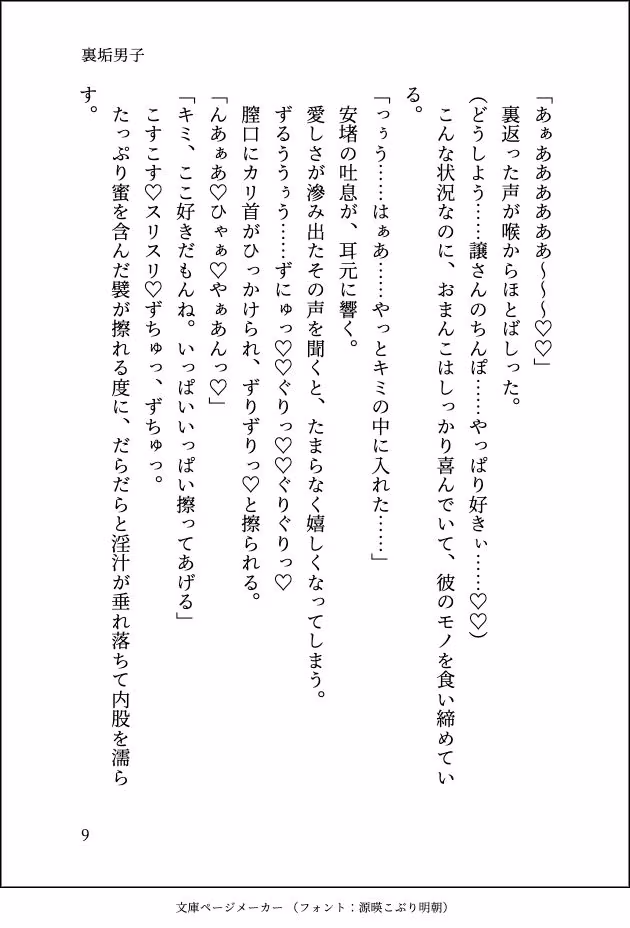 裏垢男子
「あぁあああああ～～～♡♡」
裏返った声が喉からほとばしった。
（どうしよう……譲さんのちんぽ……やっぱり好きぃ……♡♡）
こんな状況なのに、おまんこはしっかり喜んでいて、彼のモノを食い締めてい
る。
「っぅう……はぁあ……やっとキミの中に入れた……」
安堵の吐息が、耳元に響く。
愛しさが滲み出たその声を聞くと、たまらなく嬉しくなってしまう。
ずるううぅう……ずにゅっ♡♡ぐりっ♡♡ぐりぐりっ♡
膣口にカリ首がひっかけられ、ずりずりっ♡と擦られる。
「んあぁあ♡ひゃぁ♡やぁあんっ♡」
「キミ、ここ好きだもんね。いっぱいいっぱい擦ってあげる」
こすこす♡スリスリ♡ずちゅっ、ずちゅっ。
たっぷり蜜を含んだ襞が擦れる度に、だらだらと淫汁が垂れ落ちて内股を濡ら
す。
9
文庫ページメーカー（フォント：源暎こぶり明朝）